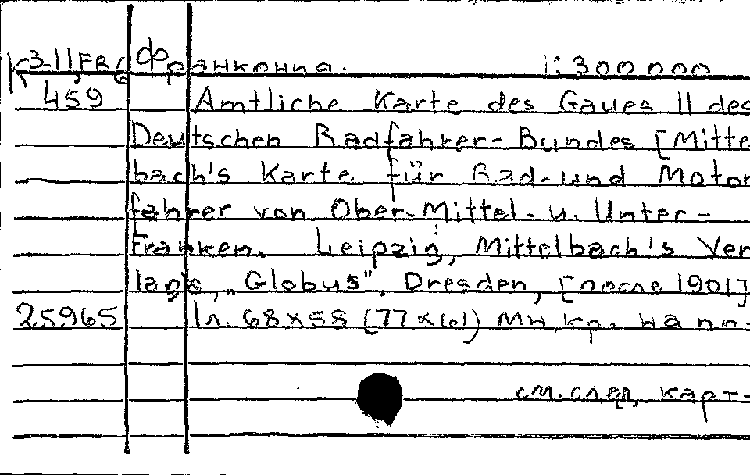 К3-11,FRG Франкония. 1:300000
459 Amtliche Karte des Gaues II des
Deutschen Radfahrer-Bundes [Mitte
bach's Karte für Rad-und Motor
fahrer von Ober-Mittel-u. Unter-
Franken. Leipzig, Mittelbach's Ver
lags, „Globus", Dresden, [после 1901]
25965 1л. 68x58 (77x61) мн.кр. на пл.
см. след. карт-